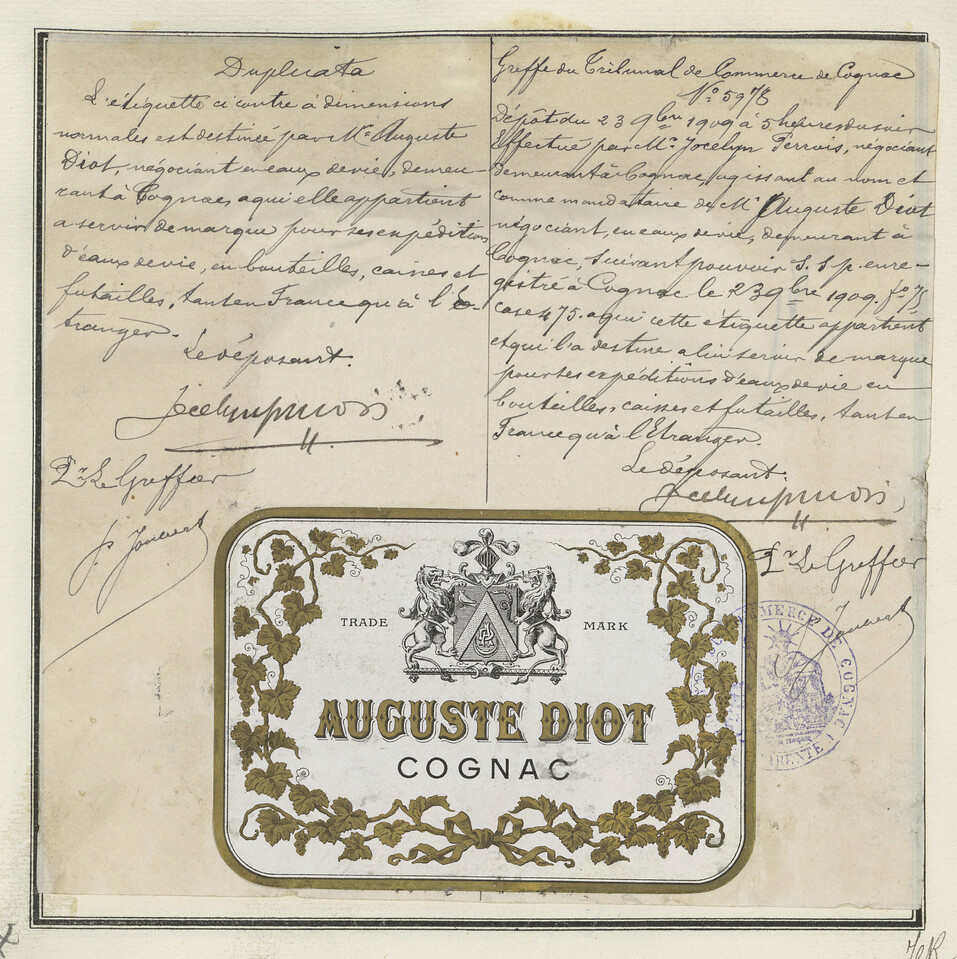 Duplicata
L'étiquette ci contre à dimensions
normales est destinée par Mr Auguste
Diot, négociant en eaux de vie, demeu-
rant à Cognac, a qui elle appartient
a servir de marque pour ses expéditions
d'eaux de vie, en bouteilles, caisses et
futailles, tant en France qu'à l'E-
tranger.
Le déposant.
Pr Le Greffier
Greffe du Tribunal de Commerce de Cognac
No 5978
Dépôt du 23 9bre 1909 à 5 heures du soir
Effectué par Mr Jocelyn Perrois, négociant
demeurant à Cognac, agissant au nom et
comme mandataire de Mr Auguste Diot
négociant, en eaux de vie, demeurant à
Cognac, suivant pouvoir S.S.p. enre-
gistré à Cognac le 23 9bre 1909. fo 78
case 475. a qui cette étiquette appartient
et qui l'a destine a lui servir de marque
pour ses expéditions d'eaux de vie en
bouteilles, caisses et futailles, tant en
France qu'à l'Etranger.
Le déposant.
Pr Le Greffier
TRADE MARK
AUGUSTE DIOT
COGNAC
DE COGNAC